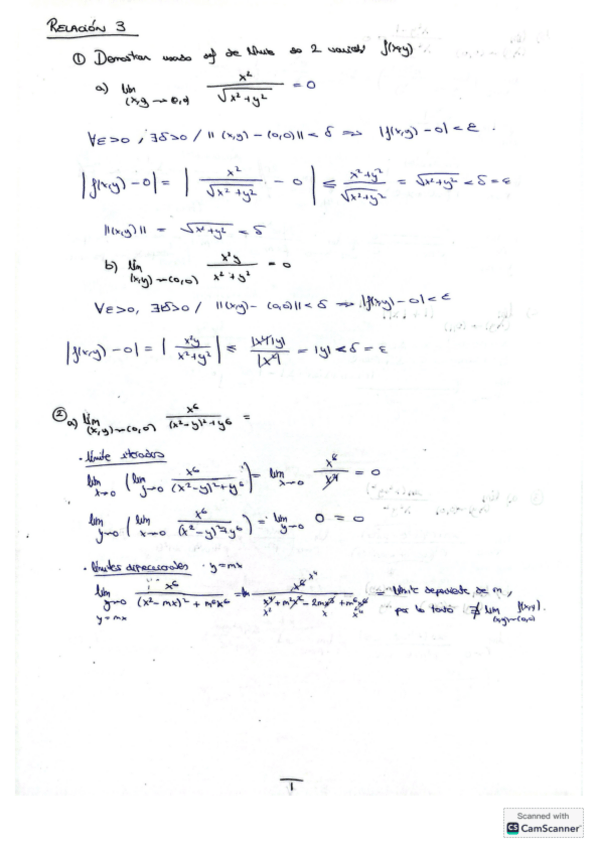 RELACIÓN 3
① Demostrar usando def de límite de 2 variables f(x,y)
a) lim (x,y)→(0,0) x²/√(x²+y²) = 0
∀ε>0, ∃δ>0 / ||(x,y)-(0,0)||<δ ⇒ |f(x,y)-0|<ε.
|f(x,y)-0| = |x²/√(x²+y²) - 0| ≤ (x²+y²)/√(x²+y²) = √(x²+y²) < δ = ε
||(x,y)|| = √(x²+y²) = δ
b) lim (x,y)→(0,0) x²y/(x²+y²) = 0
∀ε>0, ∃δ>0 / ||(x,y)-(0,0)||<δ ⇒ |f(x,y)-0|<ε
|f(x,y)-0| = |x²y/(x²+y²)| ≤ |x²||y|/|x²| = |y| < δ = ε
② a) lim (x,y)→(0,0) x⁶/((x²-y)²+y⁶) =
· límite iterados
lim x→0 (lim y→0 x⁶/((x²-y)²+y⁶)) = lim x→0 x⁶/x⁴ = 0
lim y→0 (lim x→0 x⁶/((x²-y)²+y⁶)) = lim y→0 0 = 0
· límites direccionales · y=mx
lim x→0 y=mx x⁶/((x²-mx)²+m⁶x⁶) = x⁶ x⁴/(x⁴+m²x²-2mx³+m⁶x⁶) = límite dependiente de m,
por lo tanto ∄ lim (x,y)→(0,0) f(x,y).
1
Scanned with
CS CamScanner